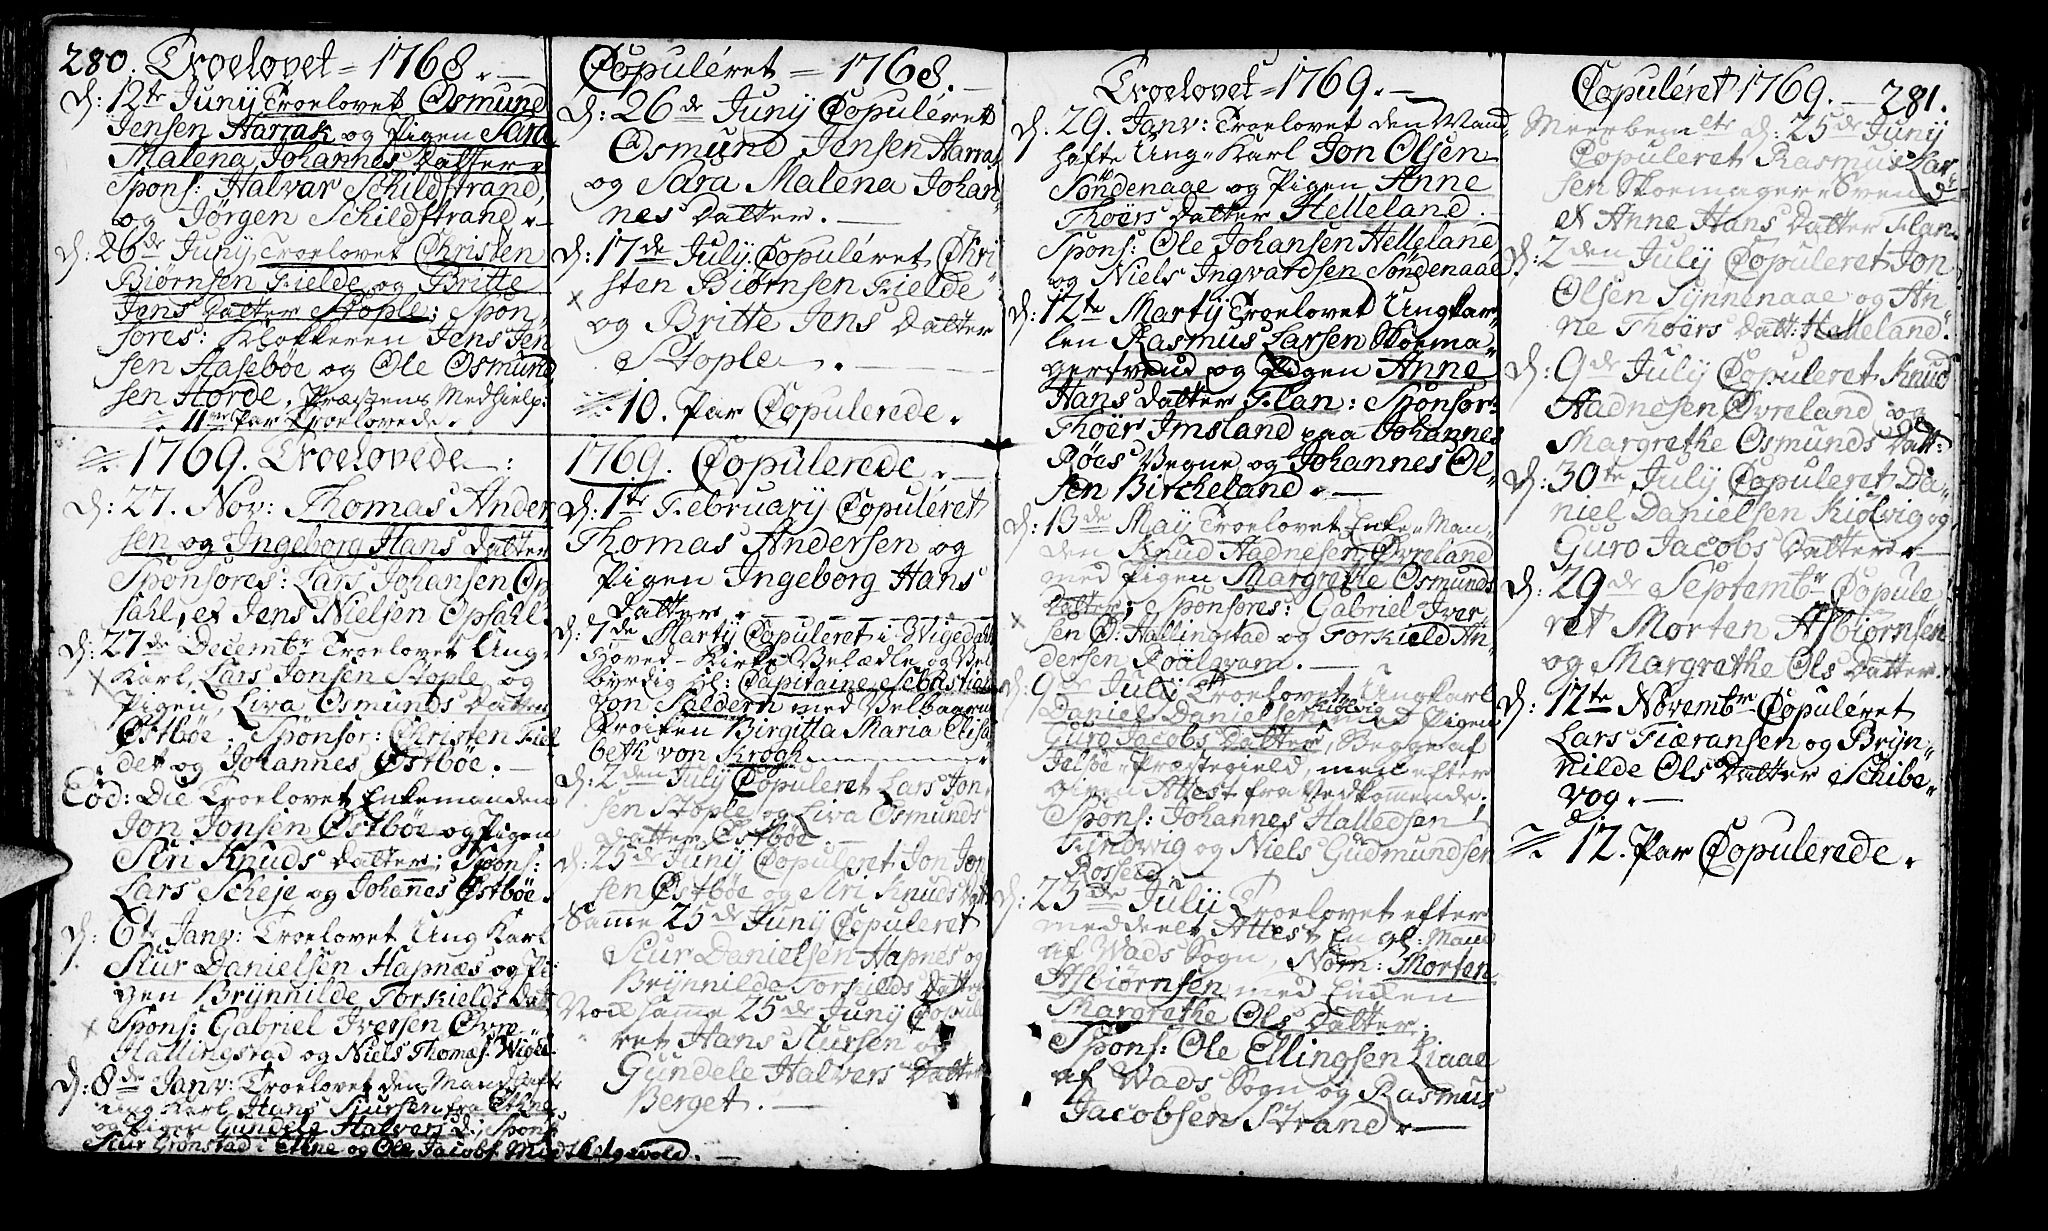 280. Troelovet = 1768. -
D: 12te Junÿ Troelovet Osmund
Jensen Harrak og Pigen Sara
Malena Johannes Datter.
Spons: Halvar Schildstrand,
og Jörgen Schildstrand.
D: 26de Junÿ, Troelovet Christen
Biörnsen Fielde og Britte
Jens Datter Stople; Spon,,
sores: Klokkeren Jens Jen
sen Haseböe og Ole Osmund
sen Horde, Præstens Medhielp:
11 Par Troelovede.
1769. Troelovede:
D: 27. Nov: Thomas Ander
sen og Ingeborg Hans Datter
Sponsores: Lars Johansen Op
sahl, et Jens Nielsen Opsahl
D: 27de Decembr Troelovet Ung
Karl, Lars Jonsen Stople og
Pigen, Liva Osmunds Datter
Östböe; Sponsor: Christen Fiel
det og Johannes Östböe. -
Eod: Die Troelovet Enkemanden
Jon Jonsen Östböe og Pigen
Siri Knuds Datter; Spons:
Lars Scheje og Johannes Östböe.
D: 6te Janv: Troelovet Ung Karl
Siur Danielsen Hapnæs og Pi
gen Brÿnnilde Torkields Datt
Spons: Gabriel Iversen Övre
Hallingstad og Niels Thomas: Wiged
D: 8de Janv: Troelovet den Mandhafte
Ung Karl Hans Siursen fra Ethne
og Pigen Gundele Halvers D: Spons:
Siur Grönstad i Ethne og Ole Jacobs: Helgevold. -
Copuléret = 1768. -
D: 26de Junÿ Copuléret
Osmund Jensen Harra
og Sara Malena Johan,,
nes Datter. -
D: 17de Julÿ. Copuléret Chri
sten Biörnsen Fielde
og Britte Jens Datter
Stople. -
10. Par Copulerede.
1769. Copulerede. -
D: 1te Februarÿ Copuléret
Thomas Andersen og
Pigen Ingeborg Hans
Datter. -
D: 7de Martÿ Copuleret i Wigedahls
Hoved-Kirke Velædle og Vel
byrdig Hl: Capitaine Sebastian
von Saldern med Velbaarne
Fröiken Birgitta Maria Elisa
beth von Krogh
D: 2den Julÿ Copuleret Lars Jon,,
sen Stople og Liva Osmunds
Datter Östböe
D: 25de Junÿ Copuleret Jon Jon
sen Östböe og Siri Knuds Datt
Samme 25de Junÿ Copuleret
Siur Danielsen Hapnes og
Brÿnnilde Torkields Datter
Nock samme 25de Junÿ Copule
ret Hans Siursen og
Gundele Halvers Datter
Berget. -
Troelovet = 1769. -
D. 29. Janv: Troelovet den Mand
hafte Ung-Karl Jon Olsen
Söndenaae og Pigen Anne
Thoërs Datter Helleland.
Spons: Ole Johansen Helleland
og Niels Ingvardsen Söndenaae
D: 12te Martÿ Troelovet Ungkar,,
len Rasmus Larsen Skoema,,
gersvend og Pigen Anne
Hans Datter Flan: Sponsor:
Thoër Imsland paa Johannes
Röes Vegne og Johannes Ol,,
sen Bircheland. -
D: 13de Maÿ Troelovet Enke-Man,,
den Knud Aadnesen Övreland
med Pigen Margrethe Osmunds
Datter; Sponsores: Gabriel Iver
sen Ö: Hallingstad og Torkield An,,
dersen Roälqvam. -
D: 9de Julÿ Troelovet Ungkarl
Daniel Danielsen Kiölvig med Pigen
Guro Jacobs Datter, Begge af
Jelsöe Præstegield, men efter
given Attest fra Vedkommende.
Spons: Johannes Halledsen
Tindvig og Niels Gudmundsen
Rosseid. -
D: 23de Julÿ Troelovet efter
meddeelt Attest En gl: Mand
af Wads Sogn, Nom: Morten
Asbiörnsen med Enken
Margrethe Ols Datter;
Spons: Ole Ellingsen Liaae
af Wads Sogn og Rasmus
Jacobsen Strand. -
Copuléret 1769. - 281.
Meerbemelte D: 25de Junÿ
Copuleret Rasmus Lar,,
sen Skoemager-Svend
et Anne Hans Datter Flan
D: 2den Julÿ Copuleret Jon
Olsen Synnenaae og An
ne Thoërs Datt: Helleland.
D: 9de Julÿ Copuleret Knud
Aadnesen Övreland og
Margrethe Osmunds Datt:
D: 30te Julÿ Copuleret Da,,
niel Danielsen Kiölvig og
Guro Jacobs Datter. -
D: 29de Septembr Copule
ret Morten Asbiörnsen
og Margrethe Ols Datter.
D: 12te Novembr Copuléret
Lars Tiæransen og Brÿn,,
nilde Ols Datter Schibe,,
vog. -
12. Par Copulerede.